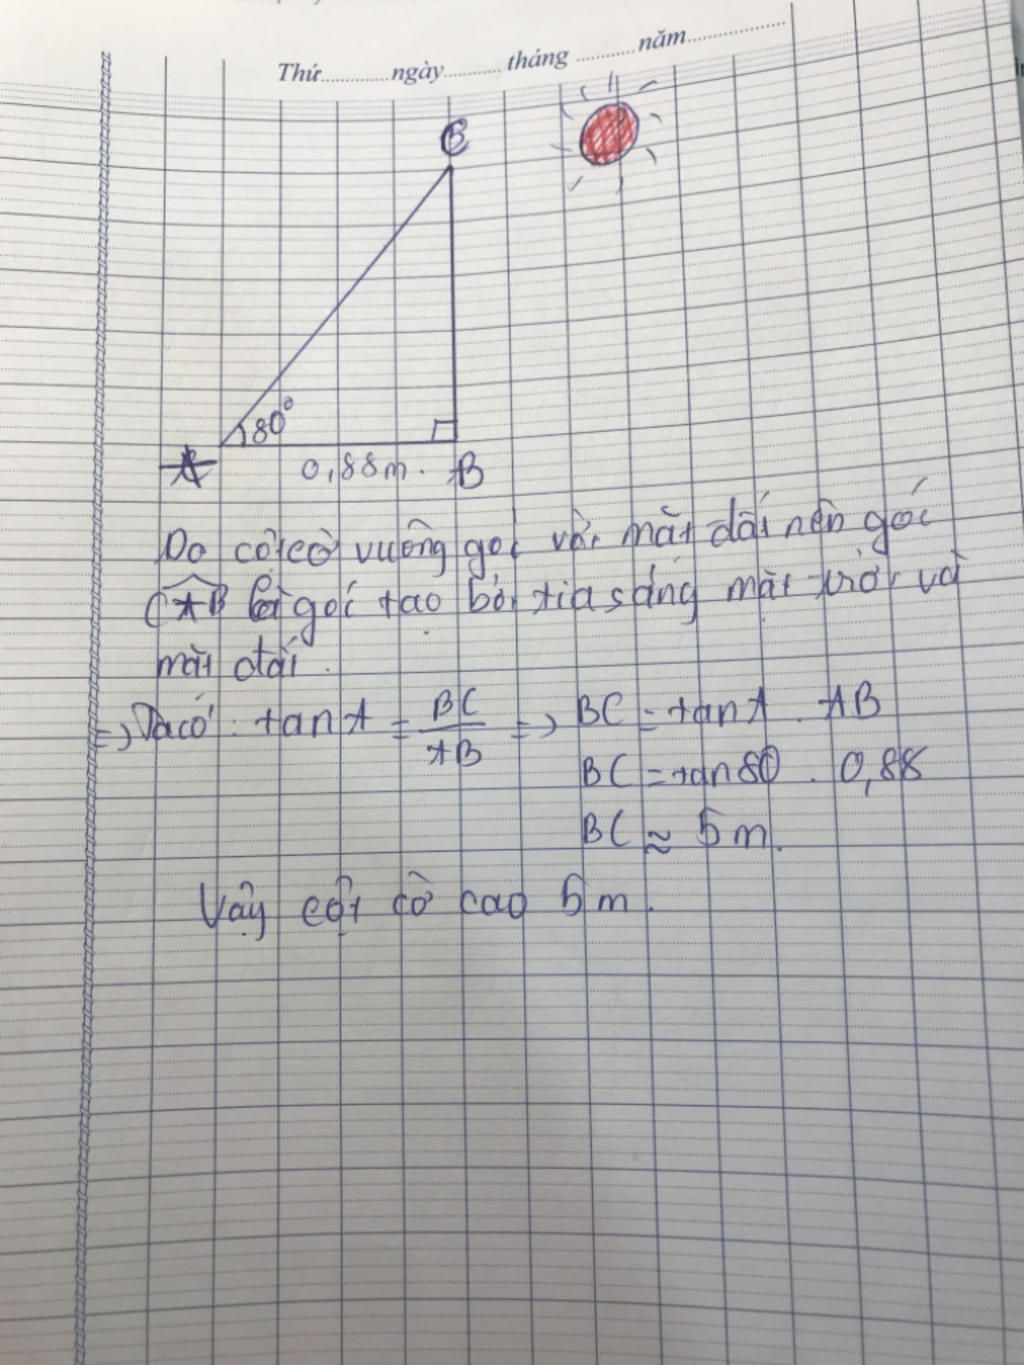 Thứ............ngày............tháng............năm............
C
80°
A 0,88m. B
Do cột cờ vuông góc với mặt đất nên góc
CAB là góc tạo bởi tia sáng mặt trời và
mặt đất.
=> Ta có: tanA = BC/AB => BC = tanA . AB
BC = tan80 . 0,88
BC ≈ 5m.
Vậy cột cờ cao 5m.